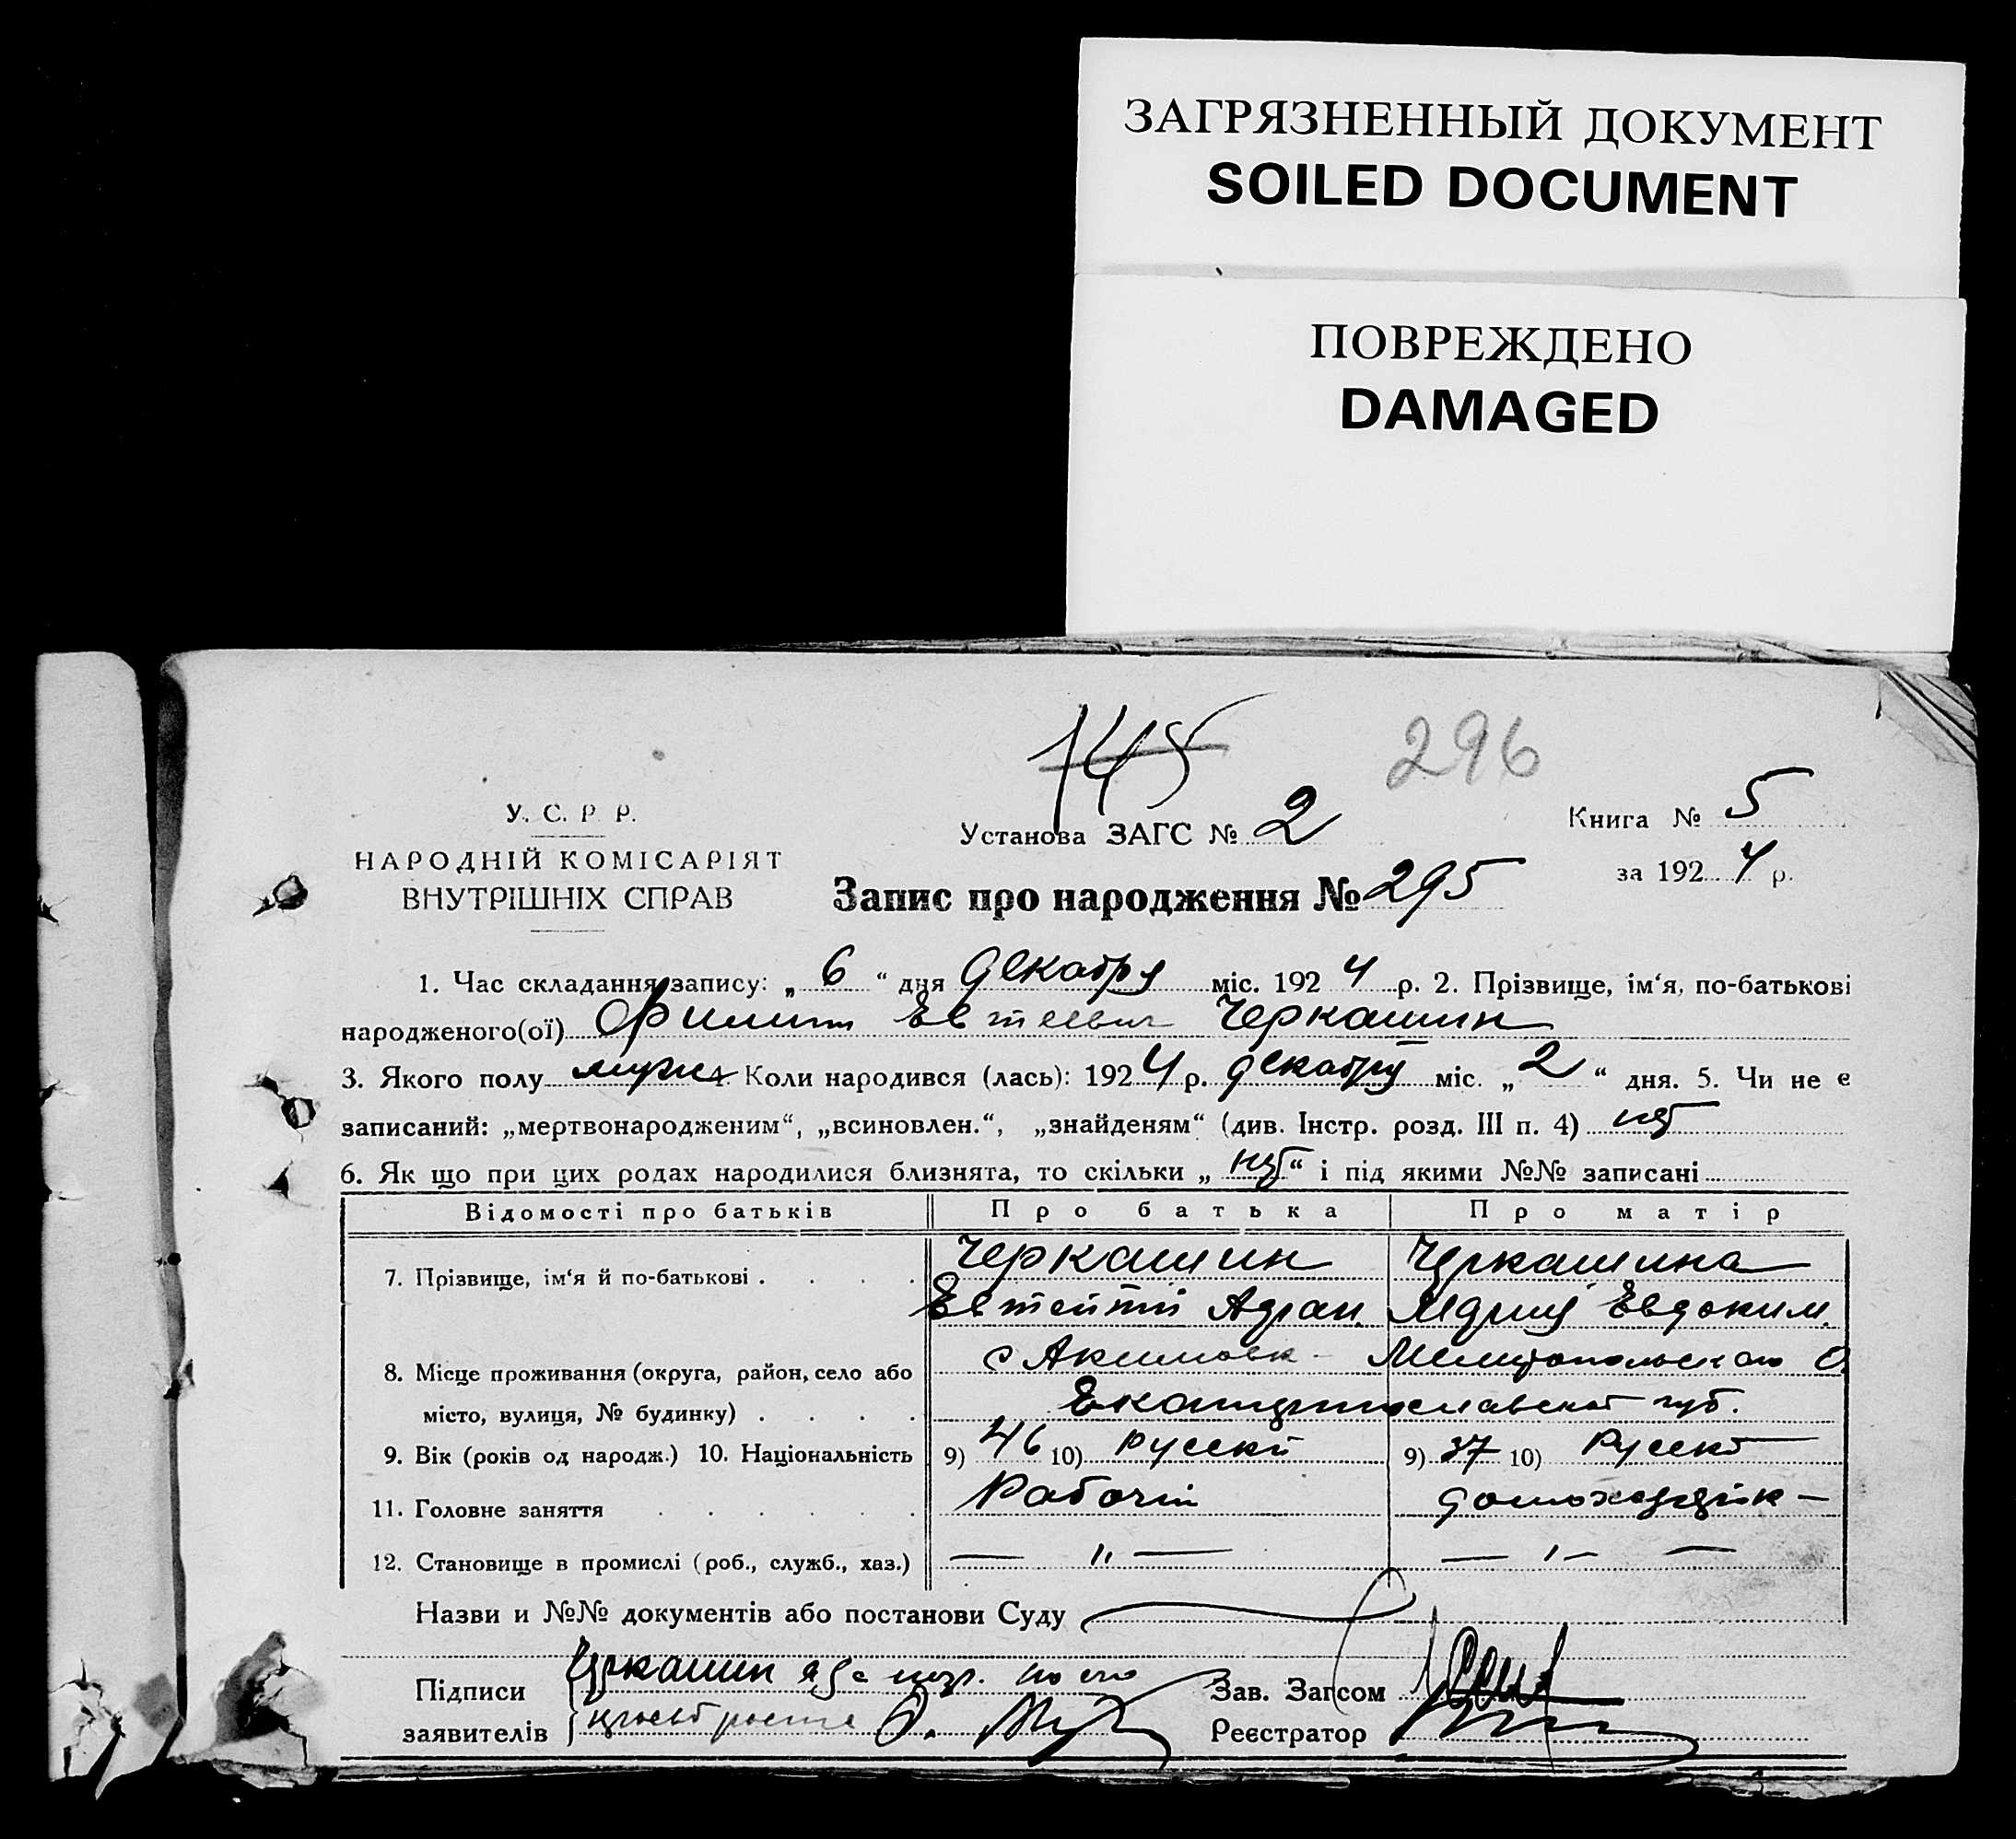 ЗАГРЯЗНЕННЫЙ ДОКУМЕНТ
SOILED DOCUMENT
ПОВРЕЖДЕНО
DAMAGED
145 296
У. С. Р. Р.
НАРОДНІЙ КОМІСАРІЯТ
ВНУТРІШНІХ СПРАВ
Установа ЗАГС № 2
Книга № 5
за 1924 р.
Запис про народження № 295
1. Час складання запису: „6“ дня декабря міс. 1924 р. 2. Прізвище, ім‘я, по-батькові
народженого(ої) Филипп Евтеевич Черкашин
3. Якого полу мужс 4. Коли народився (лась): 1924 р. декабря міс. „2“ дня. 5. Чи не є
записаний: „мертвонародженим“, „всиновлен.“, „знайденям“ (див. Інстр. розд. III п. 4) нет
6. Як що при цих родах народилися близнята, то скільки „нет“ і під якими №№ записані
Відомості про батьків Про батька Про матір
7. Прізвище, ім‘я й по-батькові . . . . Черкашин Черкашина
Евтейтий Адриан. Мария Евдоким.
8. Місце проживання (округа, район, село або с Акимовк- Мелитопольского О.
місто, вулиця, № будинку) . . . . Екатеринославской губ.
9. Вік (років од народж.) 10. Національність 9) 46 10) Русский 9) 37 10) Русск
11. Головне заняття . . . . . . Рабочий домохозяйк-
12. Становище в промислі (роб., служб., хаз.) — „ — — „ — —
Назви и №№ документів або постанови Суду
Підписи Черкашин а за негр. по его
заявителів просьбе
Зав. Загсом
Реєстратор